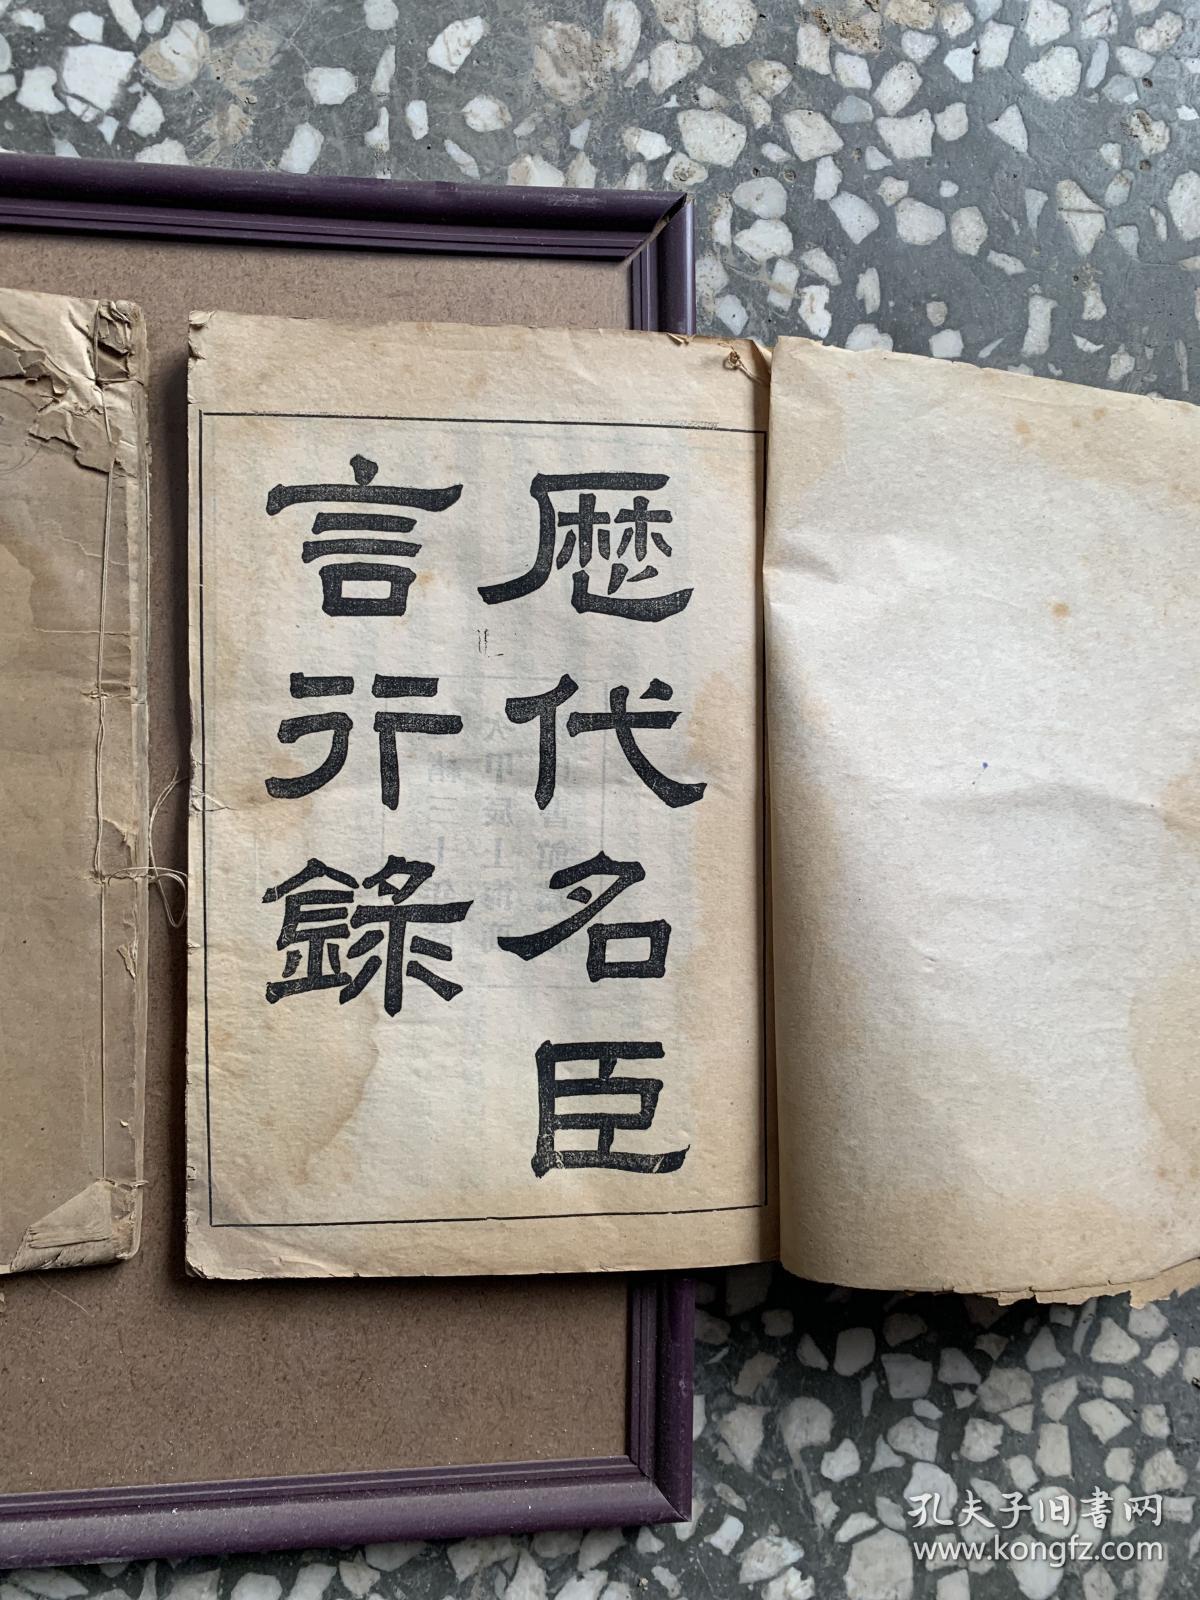 歴代名臣
言行錄
孔夫子旧書网
www.kongfz.com